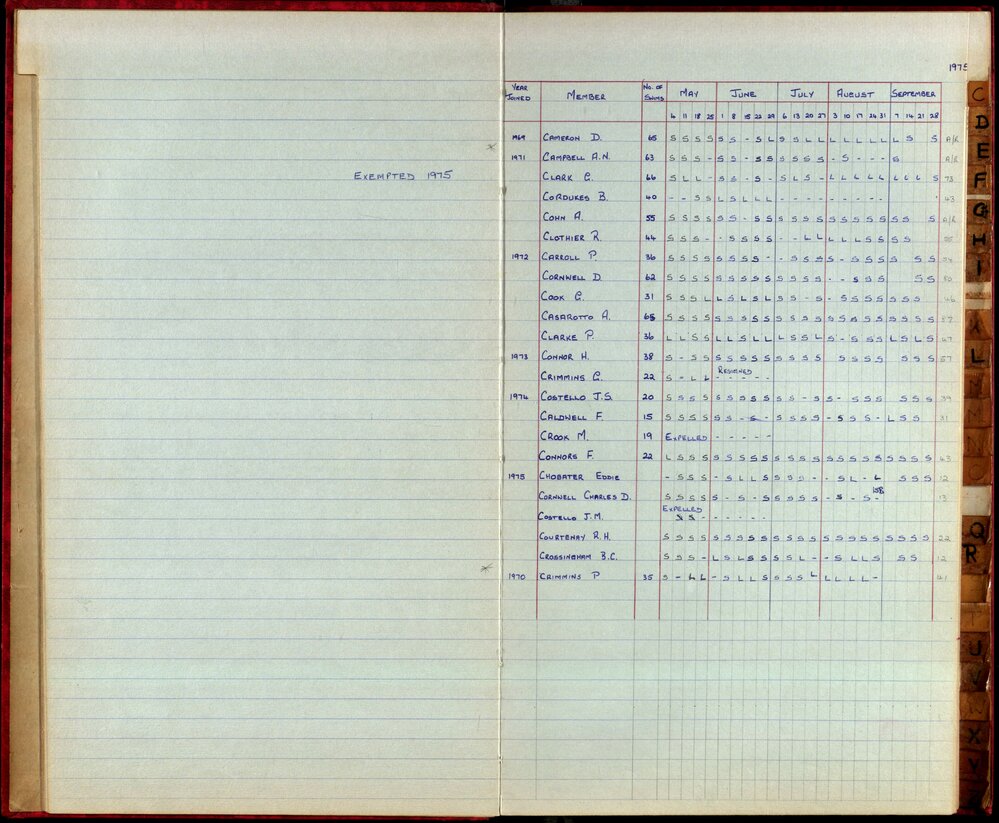 1975
YEAR JOINED MEMBER No. OF SWIMS MAY JUNE JULY AUGUST SEPTEMBER
4 11 18 25 1 8 15 22 29 6 13 20 27 3 10 17 24 31 7 14 21 28
1969 CAMERON D. 65 S S S S S S - S L S S L L L L L L L L S S A/R
1971 CAMPBELL A.N. 63 S S S - S S - S S S S S S - S - - - S A/R
EXEMPTED 1975 CLARK G. 66 S L L - S S - S - S L S - L L L L L L L L S 73
CORDUKES B. 40 - - S S L S L L L - - - - - - - - - 43
COHN A. 55 S S S S S S - S S S S S S S S S S S S S S A/R
CLOTHIER R. 44 S S S - - S S S S - - L L L L L S S S S
1972 CARROLL P. 36 S S S S S S S S - - S S S S - S S S S S S
CORNWELL D. 62 S S S S S S S S S S S S S - - S S S S S
COOK G. 31 S S S L L S L S L S S - S - S S S S S S S 46
CASAROTTO A. 65 S S S S S S S S S S S S S S S S S S S S S S
CLARKE P. 36 L L S S L L S L L L S S L S - S S S L S L L 47
1973 CONNOR H. 38 S - S S S S S S S S S S S S S S S S S S 57
CRIMMINS G. 22 S - L L RESIGNED - - - - -
1974 COSTELLO J.S. 20 S S S S S S S S S S S - S S - S S S S S S 39
CALDWELL F. 15 S S S S S S - S - S S S S - S S S - L S S 31
CROOK M. 19 EXPELLED - - - - -
CONNORS F. 22 L S S S S S S S S S S S S S S S S S S S S S 43
1975 CHOBATER EDDIE - S S S - S L L S S S - - - S L - L S S S 12
CORNWELL CHARLES D. S S S S S - S - S S S S S - S - S - 13
EXPELLED
COSTELLO J.M. S S - - - - - -
COURTENAY R.H. S S S S S S S S S S S S S S S S S S S S S S 22
CROSSINGHAM B.C. S S S - L S L S S S S L - - S L L S S S 12
1970 CRIMMINS P 35 S - L L - S L L S S S S L L L L L - 41
C
D
E
F
G
H
I
K
L
M
N
O
Q
R
T
U
V
W
X
Y